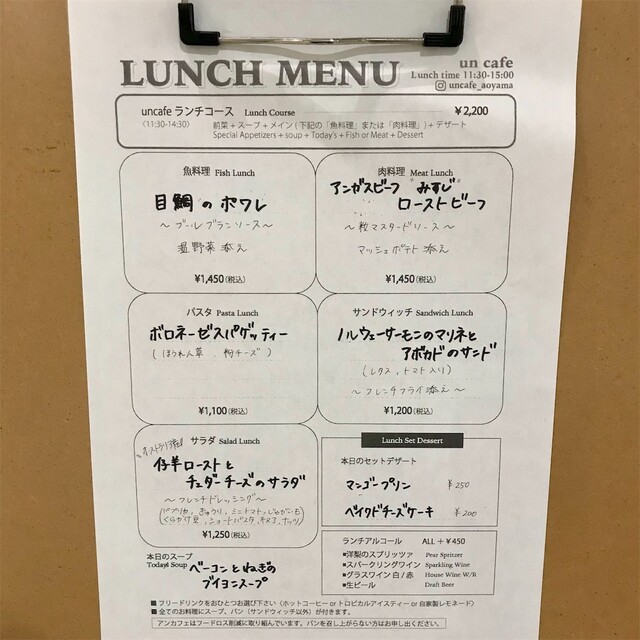 un cafe
LUNCH MENU
Lunch time 11:30-15:00
uncafe_aoyama
uncafe ランチコース Lunch Course ¥2,200
(11:30-14:30)
前菜+スープ+メイン(下記の「魚料理」または「肉料理」)+デザート
Special Appetizers + soup + Today's + Fish or Meat + Dessert
魚料理 Fish Lunch
目鯛のポワレ
〜ブールブランソース〜
温野菜添え
¥1,450(税込)
肉料理 Meat Lunch
アンガスビーフ "みすじ"
ローストビーフ
〜粒マスタードソース〜
マッシュポテト添え
¥1,450(税込)
パスタ Pasta Lunch
ボロネーゼスパゲッティー
(ほうれん草、粉チーズ)
¥1,100(税込)
サンドウィッチ Sandwich Lunch
ノルウェーサーモンのマリネと
アボカドのサンド
(レタス、トマト入り)
〜フレンチフライ添え〜
¥1,200(税込)
サラダ Salad Lunch
オーストラリア産
仔羊ローストと
チェダーチーズのサラダ
〜フレンチドレッシング〜
(パプリカ、きゅうり、ミニトマト、じゃがいも
くらかけ豆、ショートパスタ、キヌア、ナッツ)
¥1,250(税込)
本日のスープ
Todays Soup
ベーコンとねぎの
ブイヨンスープ
Lunch Set Dessert
本日のセットデザート
マンゴープリン ¥250
ベイクドチーズケーキ ¥200
ランチアルコール ALL +¥450
■洋梨のスプリッツァ Pear Spritzer
■スパークリングワイン Sparkling Wine
■グラスワイン 白/赤 House Wine W/R
■生ビール Draft Beer
■フリードリンクをおひとつお選び下さい(ホットコーヒー or トロピカルアイスティー or 自家製レモネード)
■全てのお料理にスープ、パン(サンドウィッチ以外)が付きます。
アンカフェはフードロス削減に取り組んでいます。パンを召し上がらない方はお申し出ください。